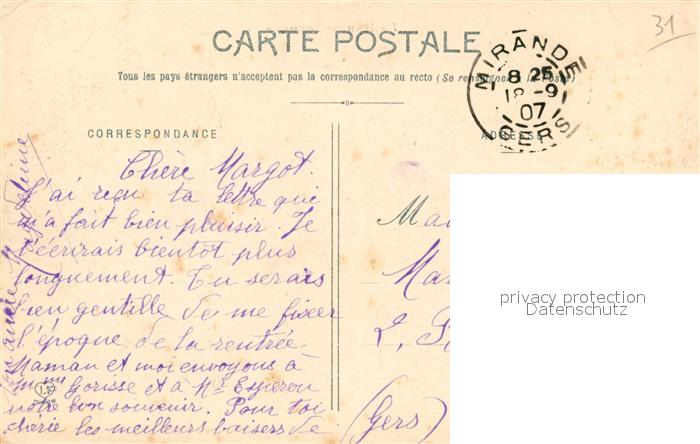 31
CARTE POSTALE
Tous les pays étrangers n'acceptent pas la correspondance au recto (Se renseigner à la Poste)
MIRANDE
8 25
18 -9
07
GERS
CORRESPONDANCE
ADRESSE
Chère Margot.
J'ai reçu ta lettre qui
m'a fait bien plaisir. Je
t'écrirais bientôt plus
longuement. Tu serais
bien gentille de me fixer
l'époque de la rentrée.
Maman et moi envoyons à
Mme Gorisse et à Mr Esperon
notre bon souvenir. Pour toi
chérie les meilleurs baisers de
ton amie
Ma
Mar
2,
(Gers)
privacy protection
Datenschutz